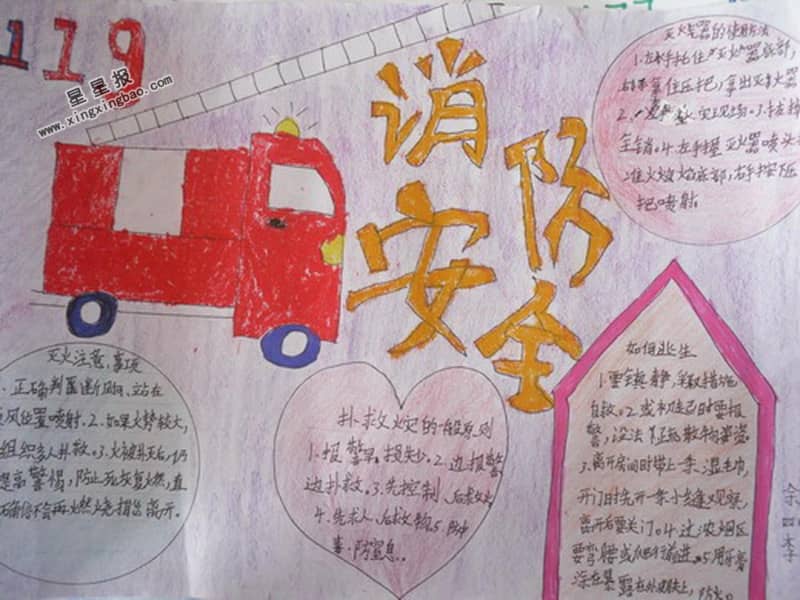 119
星星报
www.xingxingbao.com
消防
安全
灭火器的使用方法
1.左手托住灭火器底部,
右手拿住压把,拿出灭火器
现场。3.拔掉
全销。4.左手握灭火器喷头
准火焰底部,右手按下压
把喷射
灭火注意事项
1.正确判断风向,站在
风位置喷射。2.如果火势较大,
组织多人扑救。3.火被扑灭后,仍
提高警惕,防止死灰复燃,直
确信不会再燃烧措施离开。
扑救火灾的一般原则
1.报警早。损失少。2.边报警
边扑救。3.先控制,后救火
4.先求人,后救物。5.防中
毒,防窒息。
如何逃生
1.要镇静,采取措施
自救。2.或初起时要报
警,没法
3.离开房间时带上一条湿毛巾,
开门时先开一条小缝观察,
离开后要关门。4.过浓烟区
要弯腰或爬行前进。5.用牙膏
涂在暴露在外皮肤上,防
四李